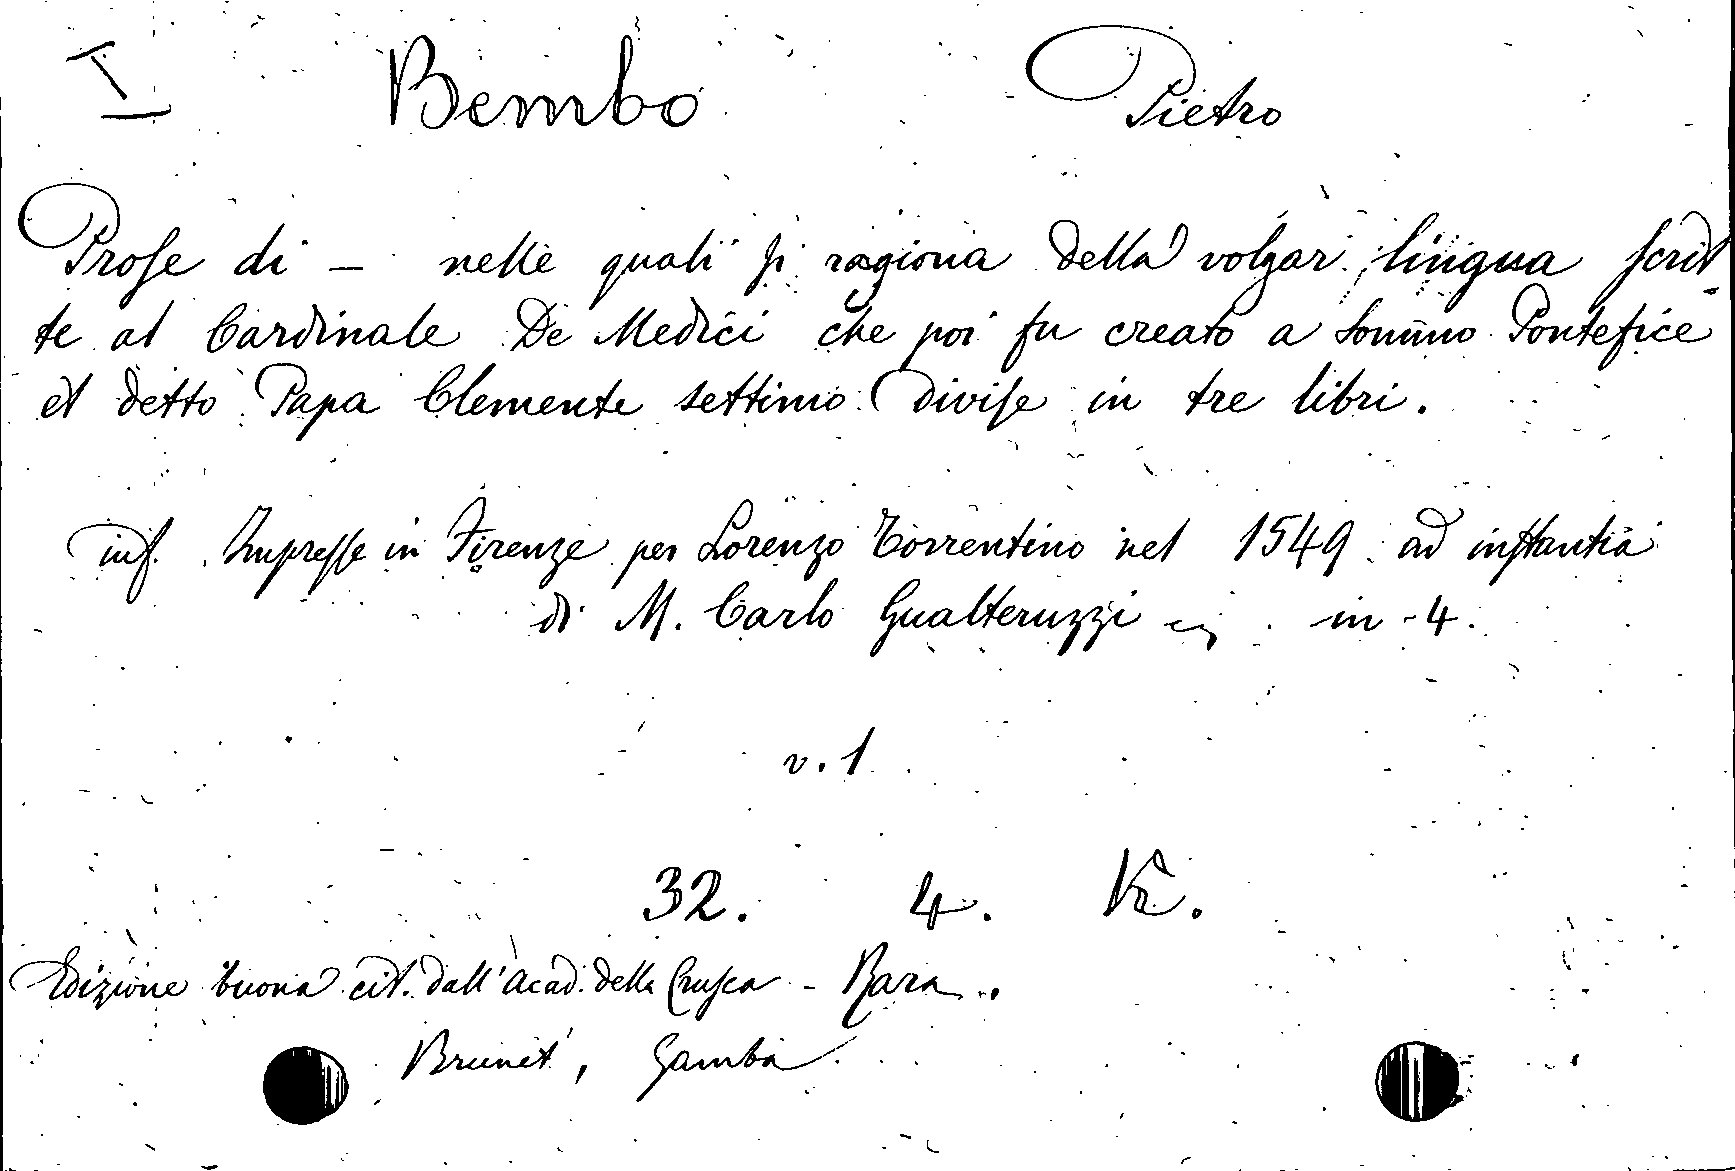 I Bembo Pietro
Proſe di — nelle quali ſi ragiona della volgar lingua ſcrit-
te al Cardinale De Medici che poi fu creato a Sommo Pontefice
et detto Papa Clemente settimo diviſe in tre libri.
inf. Impreſſe in Firenze per Lorenzo Torrentino nel 1549 ad inſtantia
di M. Carlo Gualteruzzi in - 4.
v. 1
32. 4. K.
Edizione buona cit. dall'Acad. della Cruſca - Rara.
Brunet, Gamba